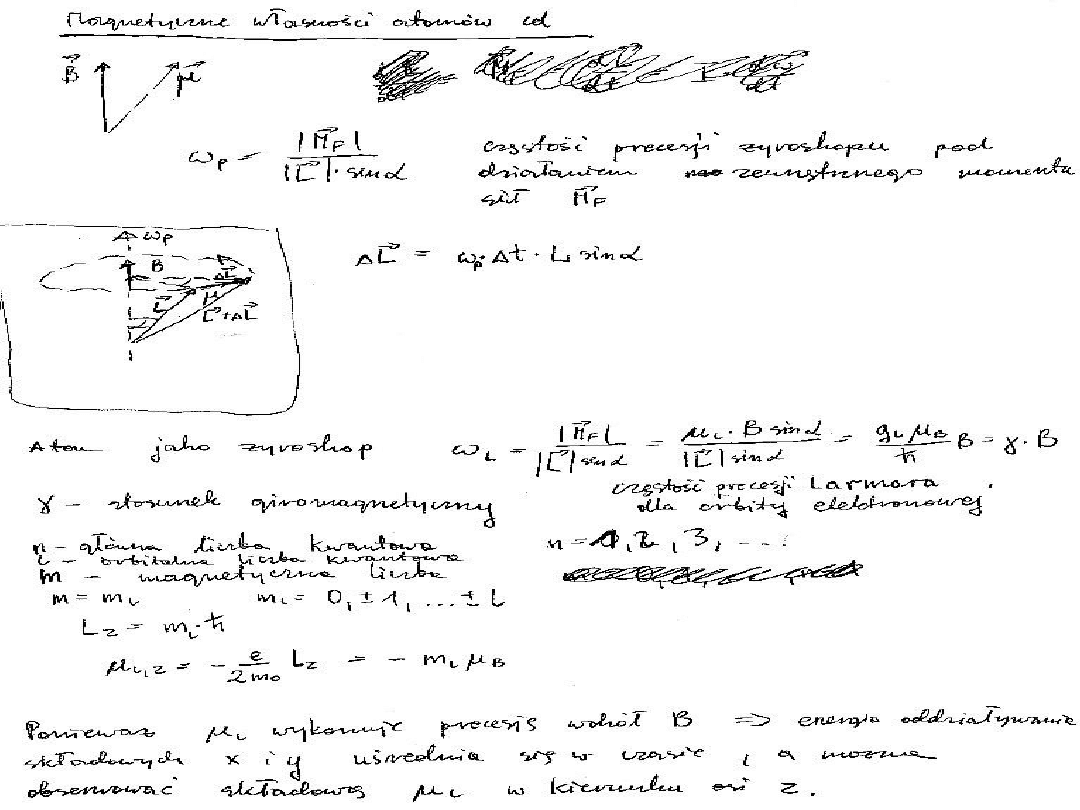 Magnetyczne własności atomów cd
B⃗ μ⃗
ω_P = |M⃗_F| / (|L⃗| · sin α) częstość precesji żyroskopu pod
działaniem zewnętrznego momentu
sił M⃗_F
ω_P
B⃗
L⃗ μ ΔL⃗
L⃗+ΔL⃗
ΔL⃗ = ω_P · Δt · L · sin α
Atom jako żyroskop ω_L = |M⃗_F| / (|L⃗| sin α) = (μ_L · B sin α) / (|L⃗| sin α) = (g_L μ_B / ħ) B = γ · B
częstość precesji Larmora
dla orbity elektronowej.
γ – stosunek giromagnetyczny
n – główna liczba kwantowa n = 1, 2, 3, ...
L – orbitalna liczba kwantowa
m – magnetyczna liczba
m = m_L m_L = 0, ± 1, ... ± L
L_z = m_L · ħ
μ_L,z = – (e / 2m_0) L_z = – m_L μ_B
Ponieważ μ_L wykonuje precesję wokół B => energia oddziaływanie
składowych x i y uśrednia się w czasie, a można
obserwować składową μ_L w kierunku osi z.